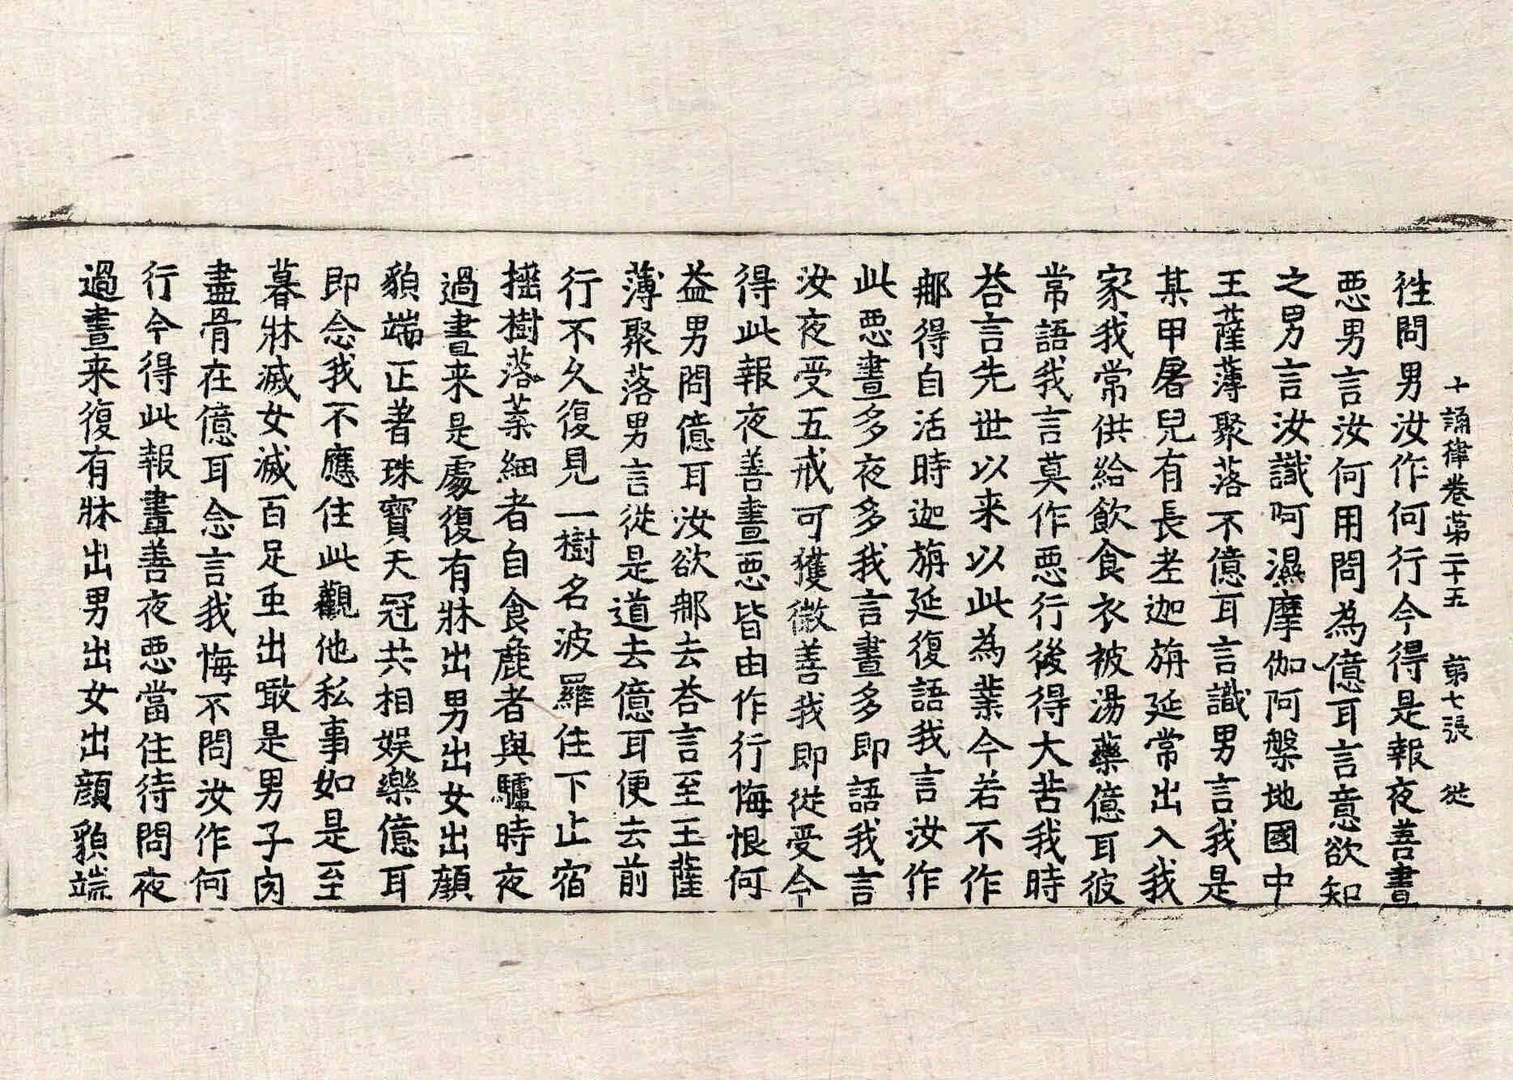 十誦律卷第二十五 第七張 從
徃問男汝作何行今得是報夜善晝
惡男言汝何用問為億耳言意欲知
之男言汝識呵濕摩伽阿槃地國中
王薩薄聚落不億耳言識男言我是
某甲屠兒有長老迦旃延常出入我
家我常供給飲食衣被湯藥億耳彼
常語我言莫作惡行後得大苦我時
荅言先世以来以此為業今若不作
那得自活時迦旃延復語我言汝作
此惡晝多夜多我言晝多即語我言
汝夜受五戒可獲微善我即從受今
得此報夜善晝惡皆由作行悔恨何
益男問億耳汝欲那去荅言至王薩
薄聚落男言從是道去億耳便去前
行不久復見一樹名波羅住下止宿
揺樹落葉細者自食麁者與驢時夜
過晝来是處復有牀出男出女出顔
貌端正著珠寶天冠共相娛樂億耳
即念我不應住此觀他私事如是至
暮牀滅女滅百足虫出噉是男子肉
盡骨在億耳念言我悔不問汝作何
行今得此報晝善夜惡當住待問夜
過晝来復有牀出男出女出顔貌端